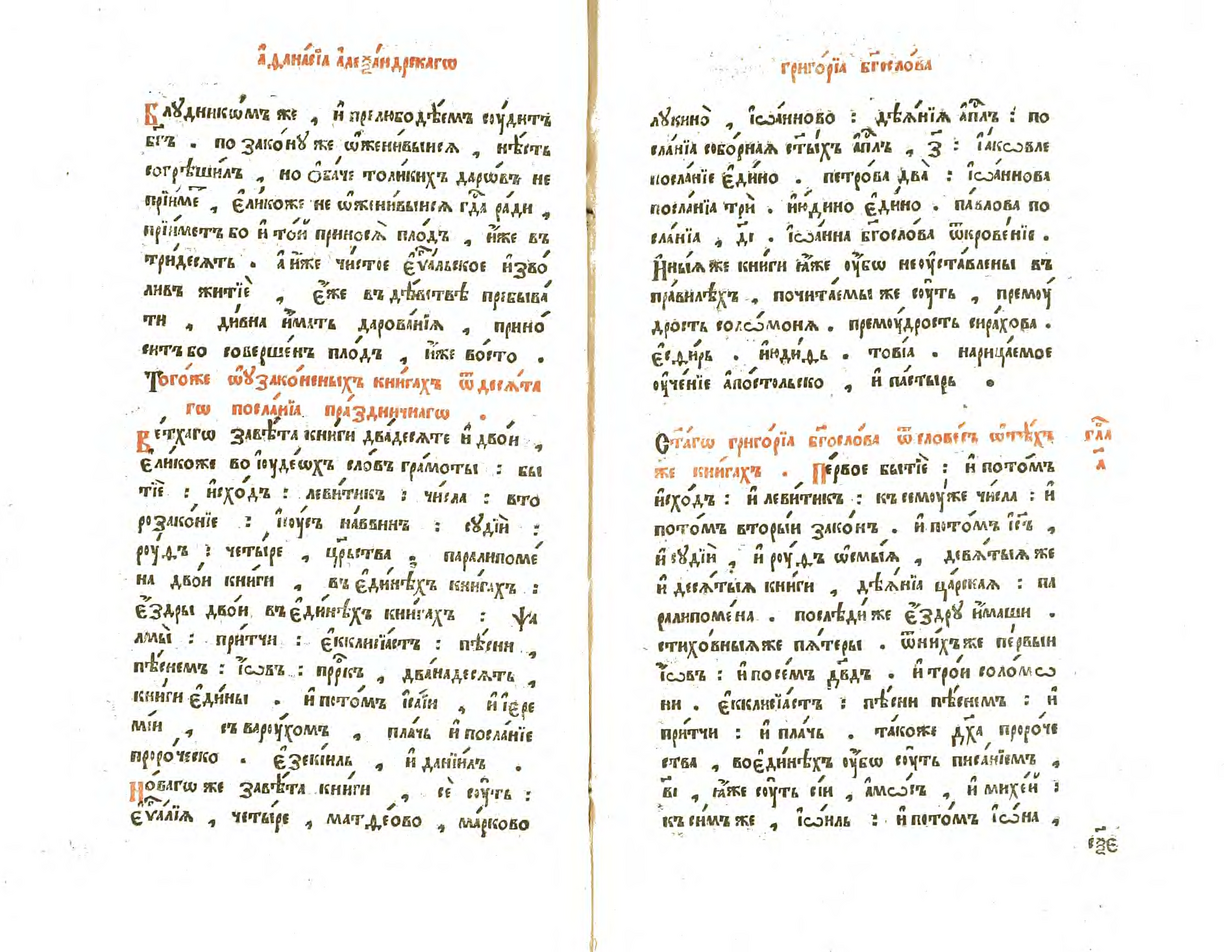 а҆ѳана́сїа а҆леѯа́ндрскагѡ
Блꙋдникѡ́мъ же , и҆ прелюбодѣ́емъ сꙋ́дитъ
бг҃ъ . по зако́нꙋ же ѡ҆жени́выисѧ , нѣ́сть
согрѣши́лъ , но ѻ҆ба́че толи́кихъ даро́въ не
прїи́ме , є҆ли́коже не ѡ҆жени́выисѧ гд҃а ра́ди ,
прїи́метъ бо и҆ то́й приносѧ̀ пло́дъ , и҆́же въ
три́десѧть . а҆ и҆́же чи́стое є҆ѵⷢ҇альское и҆зво́
ливъ житїѐ , є҆́же въ дѣ́вствѣ пребыва́
ти , ди́вна и҆́мать дарова́нїѧ , прино́
ситъ бо соверше́нъ пло́дъ , и҆́же во́сто .
Того́же ѡ҆ ᲂу҆зако́неныхъ кни́гахъ ѿ десѧ́та
гѡ посла́нїа пра́здничнагѡ .
Ве́тхагѡ завѣ́та кни́ги два́десѧте и҆ двои̑ ,
є҆ли́коже во і҆ꙋде́ѡхъ сло́въ гра́моты : бы
тїѐ : и҆схо́дъ : леви́тикъ : чи́сла : вто
розако́нїе : і҆исꙋ́съ на́ввинъ : сꙋді́й :
роу́ѳъ : четы́ре , црⷭ҇тва . паралипоме́
на двои̑ кни́ги , въ є҆ди́нѣхъ кни́гахъ :
є҆́здры двои̑ въ є҆ди́нѣхъ кни́гахъ : ѱа
лмы̀ : при́тчи : є҆кклисїа́стъ : пѣ́сни ,
пѣ́снемъ : і҆́ѡвъ : прⷪ҇ркъ , двана́десѧть ,
кни́ги є҆ди́ны . и҆ пото́мъ і҆са́їи , и҆ і҆ере
мі́и , съ вароу́хомъ , пла́чь и҆ посла́нїе
проро́ческо . є҆зекі́иль , и҆ данїи́лъ .
Но́вагѡ же завѣ́та кни́ги , сѐ соу́ть :
є҆ѵⷢ҇алїѧ , четы́ре , матѳе́ово , ма́рково
григо́рїа бг҃осло́ва
лꙋкино̀ , і҆ѡа́нново : дѣѧ́нїѧ а҆пⷭ҇лъ : по
сла́нїа собо́рнаѧ ст҃ы́хъ а҆пⷭ҇лъ , з҃ : і҆а́кѡвле
посла́нїе є҆ди́но . петро́ва два̀ : і҆ѡа́ннова
посла́нїа трѝ . и҆ю́дино є҆ди́но . па́влова по
сла́нїа , д҃і . і҆ѡа́нна бг҃осло́ва ѿкрове́нїе .
И҆ны́ѧ же кни́ги ꙗ҆́же ᲂу҆́бѡ неᲂу҆ста́влены въ
пра́вилѣхъ , почита́емы же соу́ть , премоу́
дрость солѡмо́нѧ . премоу́дрость сира́хова .
є҆сѳи́рь . и҆юди́ѳь . това́а . нарица́емое
ᲂу҆че́нїе а҆по́стольско , и҆ па́стырь .
Ст҃а́гѡ григо́рїа бг҃осло́ва ѿ слове́съ ѡ҆ тѣ́хъ
же кни́гахъ . Пе́рвое бытїѐ : и҆ пото́мъ
гл҃а
а҃
и҆схо́дъ : и҆ леви́тикъ : къ семоу́же чи́сла : и҆
пото́мъ вторы́и зако́нъ . и҆ пото́мъ і҆с҃ъ ,
и҆ сꙋді́й , и҆ роу́ѳъ ѡ҆смы́ѧ , девѧ́тыѧ же
и҆ десѧ́тыѧ кни́ги , дѣѧ́нїа ца́рскаѧ : па
ралипоме́на . послѣди́же є҆́здрꙋ и҆́маши .
стихо́вныѧ же пѧ́теры . ѿ ни́хъже пе́рвыи
і҆́ѡвъ : и҆ посе́мъ дв҃дъ . и҆ трои̑ соло́мѡ
ни . є҆кклисїа́стъ : пѣ́сни пѣ́снемъ : и҆
при́тчи : и҆ пла́чь . та́коже дх҃а проро́че
ства , во є҆ди́нѣхъ ᲂу҆́бѡ соу́ть писа́нїемъ ,
в҃і , ꙗ҆́же соу́ть сїи , а҆мѡ́съ , и҆ михе́й :
къ си́мъ же , і҆ѡи́ль : и҆ пото́мъ і҆ѡ́на ,
сѯ҃є